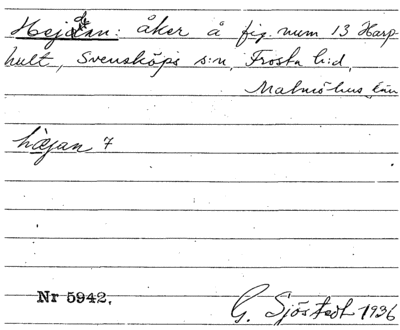 Hejdan: åker å fig. num 13 Harp-
hult, Svensköps s:n, Frosta h:d,
Malmöhus län
hæjan 7
Nr 5942.
G. Sjöstedt 1936